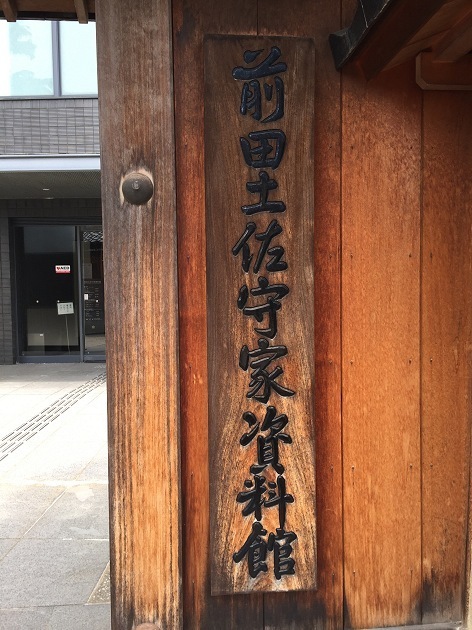 前田土佐守家資料館